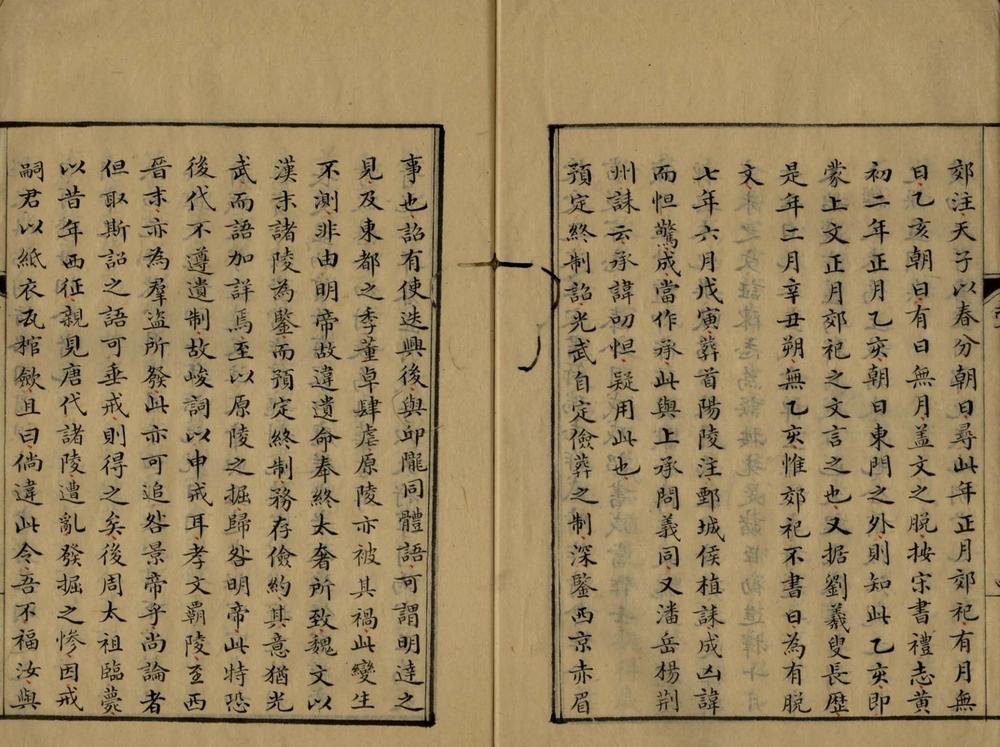 郊注天子以春分朝日尋此年正月郊祀有月無
日乙亥朝日有日無月盖文之脱按宋書禮志黄
初二年正月乙亥朝日東門之外則知此乙亥即
蒙上文正月郊祀之文言之也又据劉羲叟長歷
是年二月辛丑朔無乙亥惟郊祀不書日為有脱
文
七年六月戊寅葬首陽陵注鄄城侯植誄成凶諱
而怛驚成當作承此與上承問義同又潘岳楊荆
州誄云承諱叨怛疑用此也
預定終制詔光武自定儉葬之制深鑒西京赤眉
事也詔有使迭興後與邱隴同體語可謂明達之
見及東都之季董卓肆虐原陵亦被其禍此變生
不測非由明帝故違遺命奉終太奢所致魏文以
漢末諸陵為鑒而預定終制務存儉約其意猶光
武而語加詳焉至以原陵之掘歸咎明帝此特恐
後代不遵遺制故峻詞以申戒耳孝文霸陵至西
晉末亦為羣盜所發此亦可追咎景帝乎尚論者
但取斯詔之語可垂戒則得之矣後周太祖臨薨
以昔年西征親見唐代諸陵遭亂發掘之慘因戒
嗣君以紙衣瓦棺歛且曰倘違此令吾不福汝與